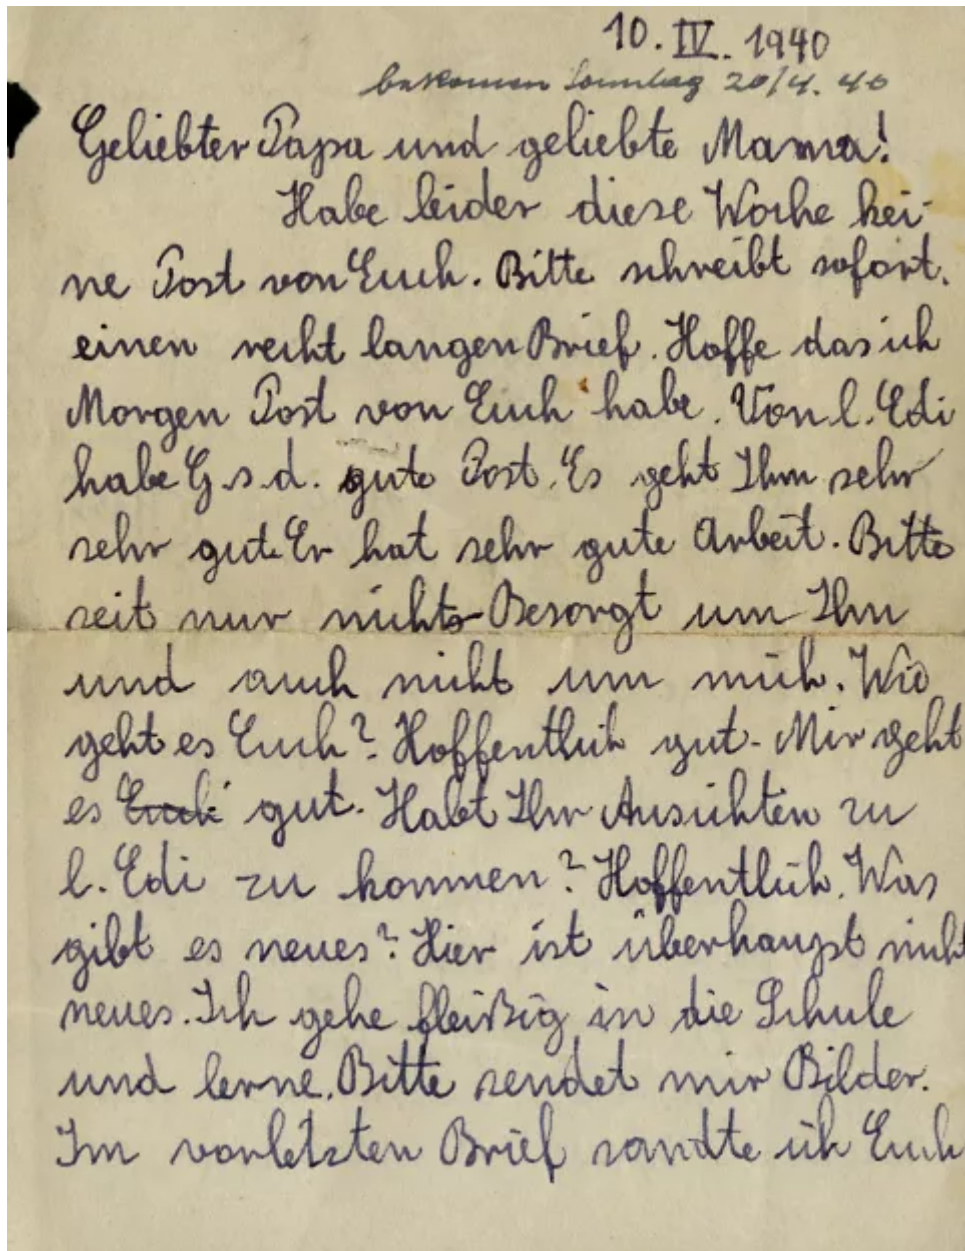 10. IV. 1940
bekomen Sonntag 20/4. 40
Geliebter Papa und geliebte Mama!
Habe leider diese Woche kei-
ne Post von Euch. Bitte schreibt sofort.
einen recht langen Brief. Hoffe das ich
Morgen Post von Euch habe. Von l. Edi
habe G.s.d. gute Post. Es geht Ihm sehr
sehr gut. Er hat sehr gute Arbeit. Bitte
seit nur nichts Besorgt um Ihn
und auch nicht um mich. Wie
geht es Euch? Hoffentlich gut. Mir geht
es Euch gut. Habt Ihr Aussichten zu
l. Edi zu kommen? Hoffentlich. Was
gibt es neues? Hier ist überhaupt nicht
neues. Ich gehe fleißig in die Schule
und lerne. Bitte sendet mir Bilder.
Im vorletzten Brief sandte ich Euch